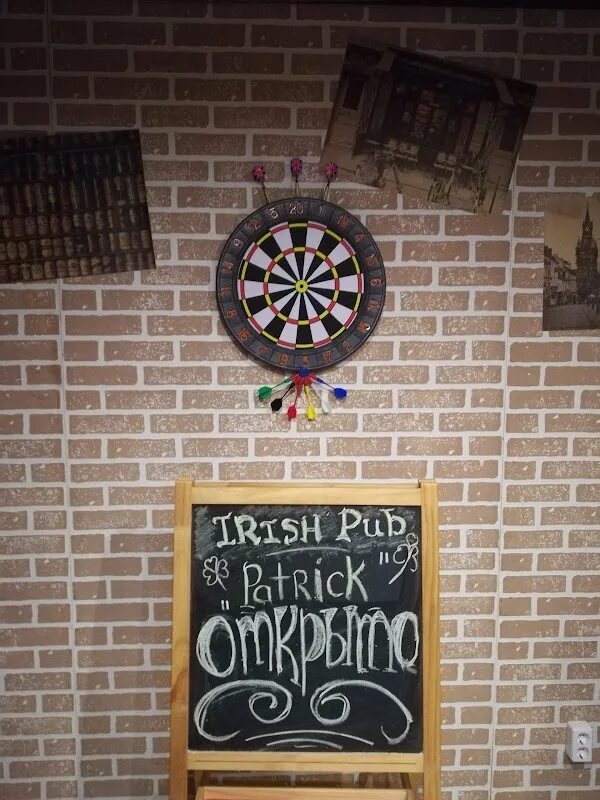 20
IRISH PUB
"Patrick"
ОТКРЫТО